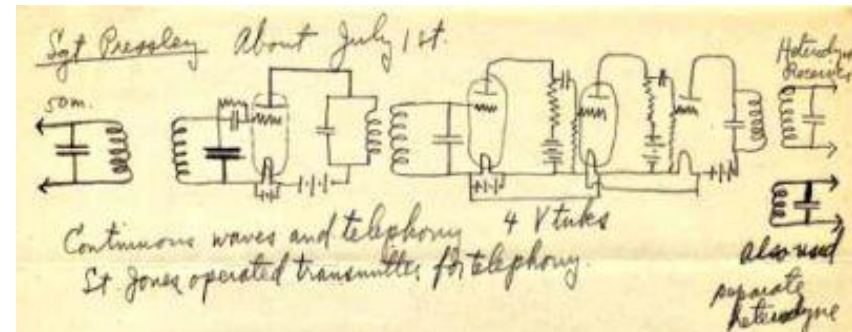 Sgt Pressley About July 1st.
Heterodyne
Receiver
50m.
Continuous waves and telephony 4 V tubes
St Jones operated transmitter for telephony.
also used
separate
heterodyne